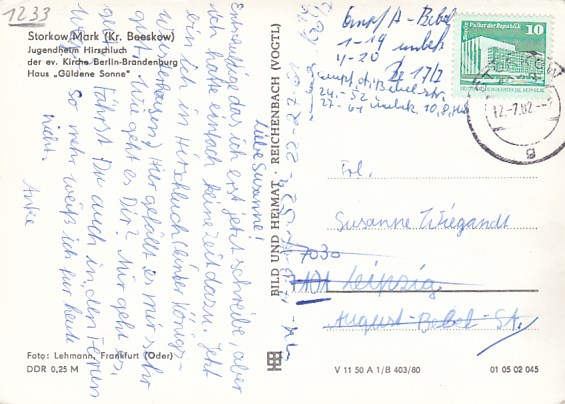 1233
Storkow/Mark (Kr. Beeskow)
Jugendheim Hirschluch
der ev. Kirche Berlin-Brandenburg
Haus „Güldene Sonne"
Liebe Susanne!
Entschuldige das ich erst jetzt schreibe, aber
ich hatte einfach keine Zeit dazu. Jetzt
bin ich in Hirschluch (unter Königs-
wusterhausen) Hier gefällt es mir sehr
gut. Wie geht es Dir? Mir geht es
gut. Fährst Du auch in den Ferien
weg? So mehr weiß ich für heute
nicht.
Antje
Foto: Lehmann, Frankfurt (Oder)
DDR 0,25 M
BILD UND HEIMAT · REICHENBACH (VOGTL)
A.-Bebel
1-19
4-20
Bebel-str.
24-52
27-61 10,8,
Palast der Republik
10
DDR
12.-7.82
g
Frl.
Susanne Wiegandt
7030
Leipzig
August-Bebel-St.
V 11 50 A 1/B 403/80
01 05 02 045